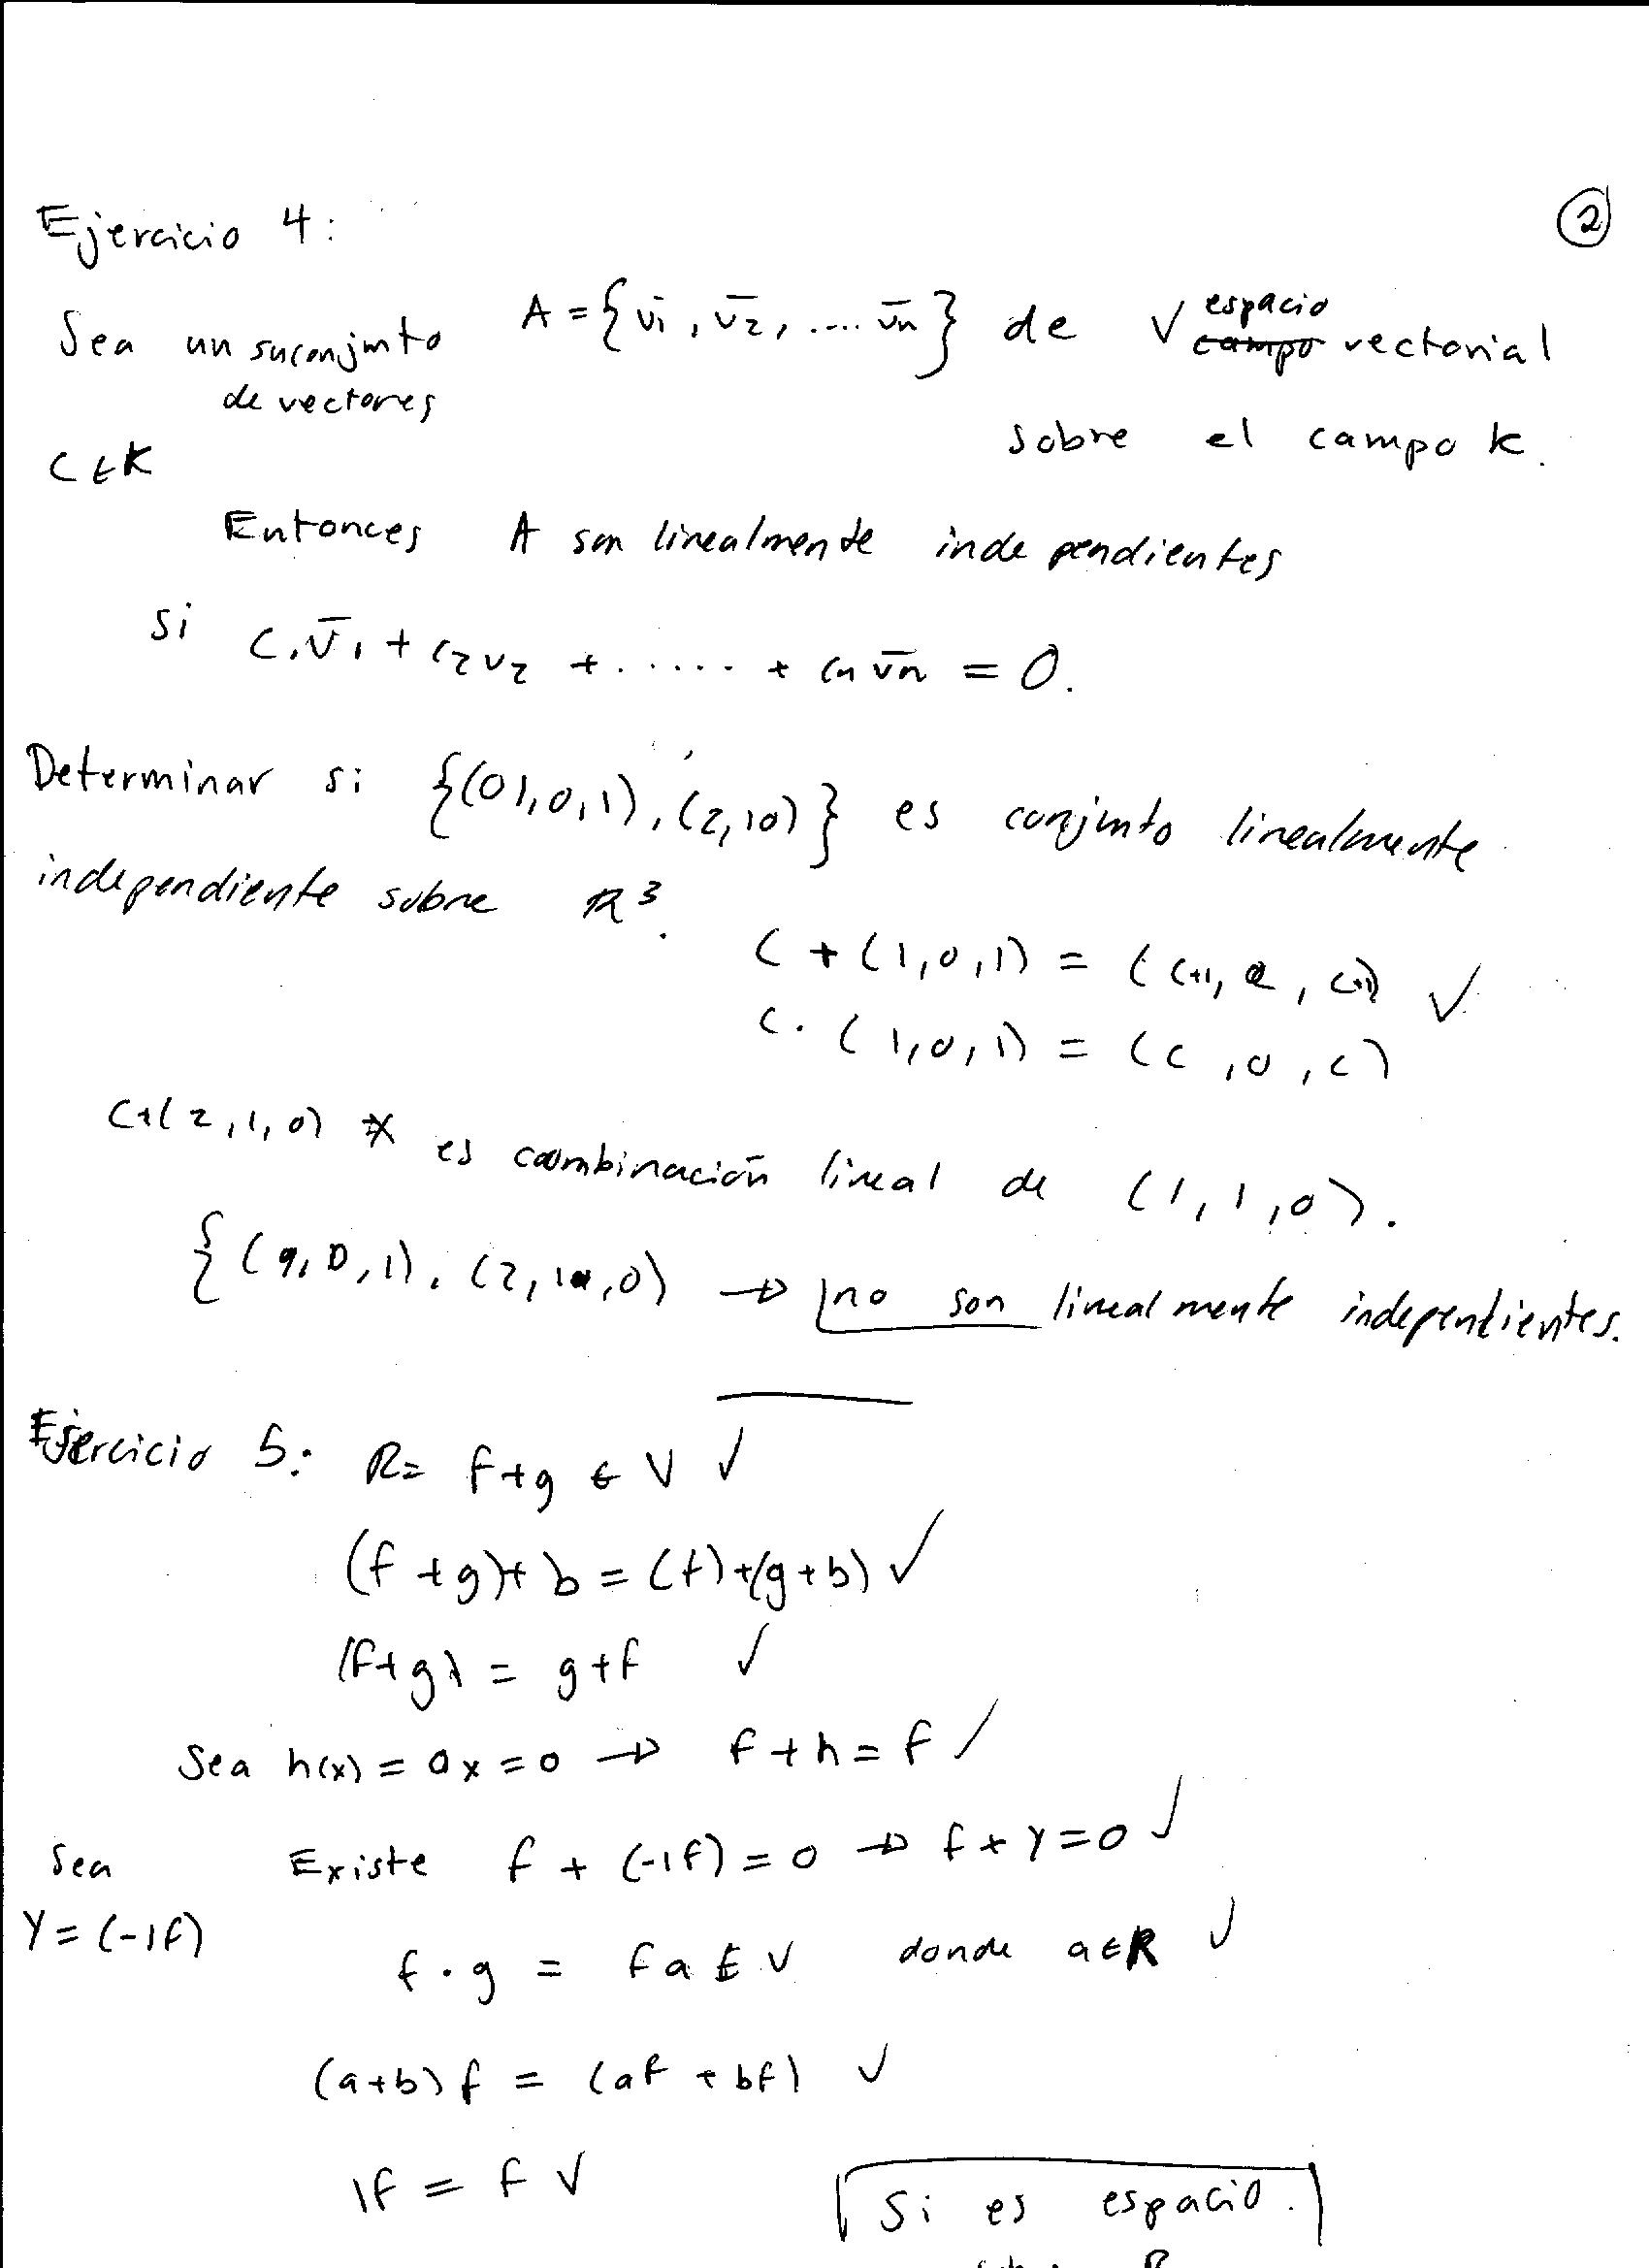 ②
Ejercicio 4:
Sea un suconjunto de vectores A = {v̄1, v̄2, .... v̄n} de V espacio ~~campo~~ vectorial
sobre el campo K.
C ∈ K
Entonces A son linealmente independientes
si C1 v̄1 + C2 v2 + ...... + Cn v̄n = 0.
Determinar si {(01,0,1), (2,10)} es conjunto linealmente
independiente sobre R³.
C + (1,0,1) = (C+1, C, C+1) ✓
C · (1,0,1) = (C, 0, C)
C+(2,1,0) * es combinación lineal de (1,1,0).
{(9,0,1), (2,1,0) → no son linealmente independientes.
Ejercicio 5: R= f+g ∈ V ✓
(f+g)+b = (f)+(g+b) ✓
(f+g) = g+f ✓
Sea h(x) = 0x = 0 → f+h = f ✓
Sea Existe f + (-1f) = 0 → f + Y = 0 ✓
Y = (-1f)
f · g = fa ∈ V donde a ∈ R ✓
(a+b) f = (af + bf) ✓
1f = f ✓
Si es espacio.
R